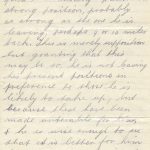 strong position, probably
as strong as the one he is
leaving, perhaps 8 or 10 miles
back. This is merely supposition
but granting that this
may be so, he is not leaving
his present positions in
preference to those he is
likely to take up, but
because these have been
made untenable for him,
& he is wise enough to see
that it is better for him